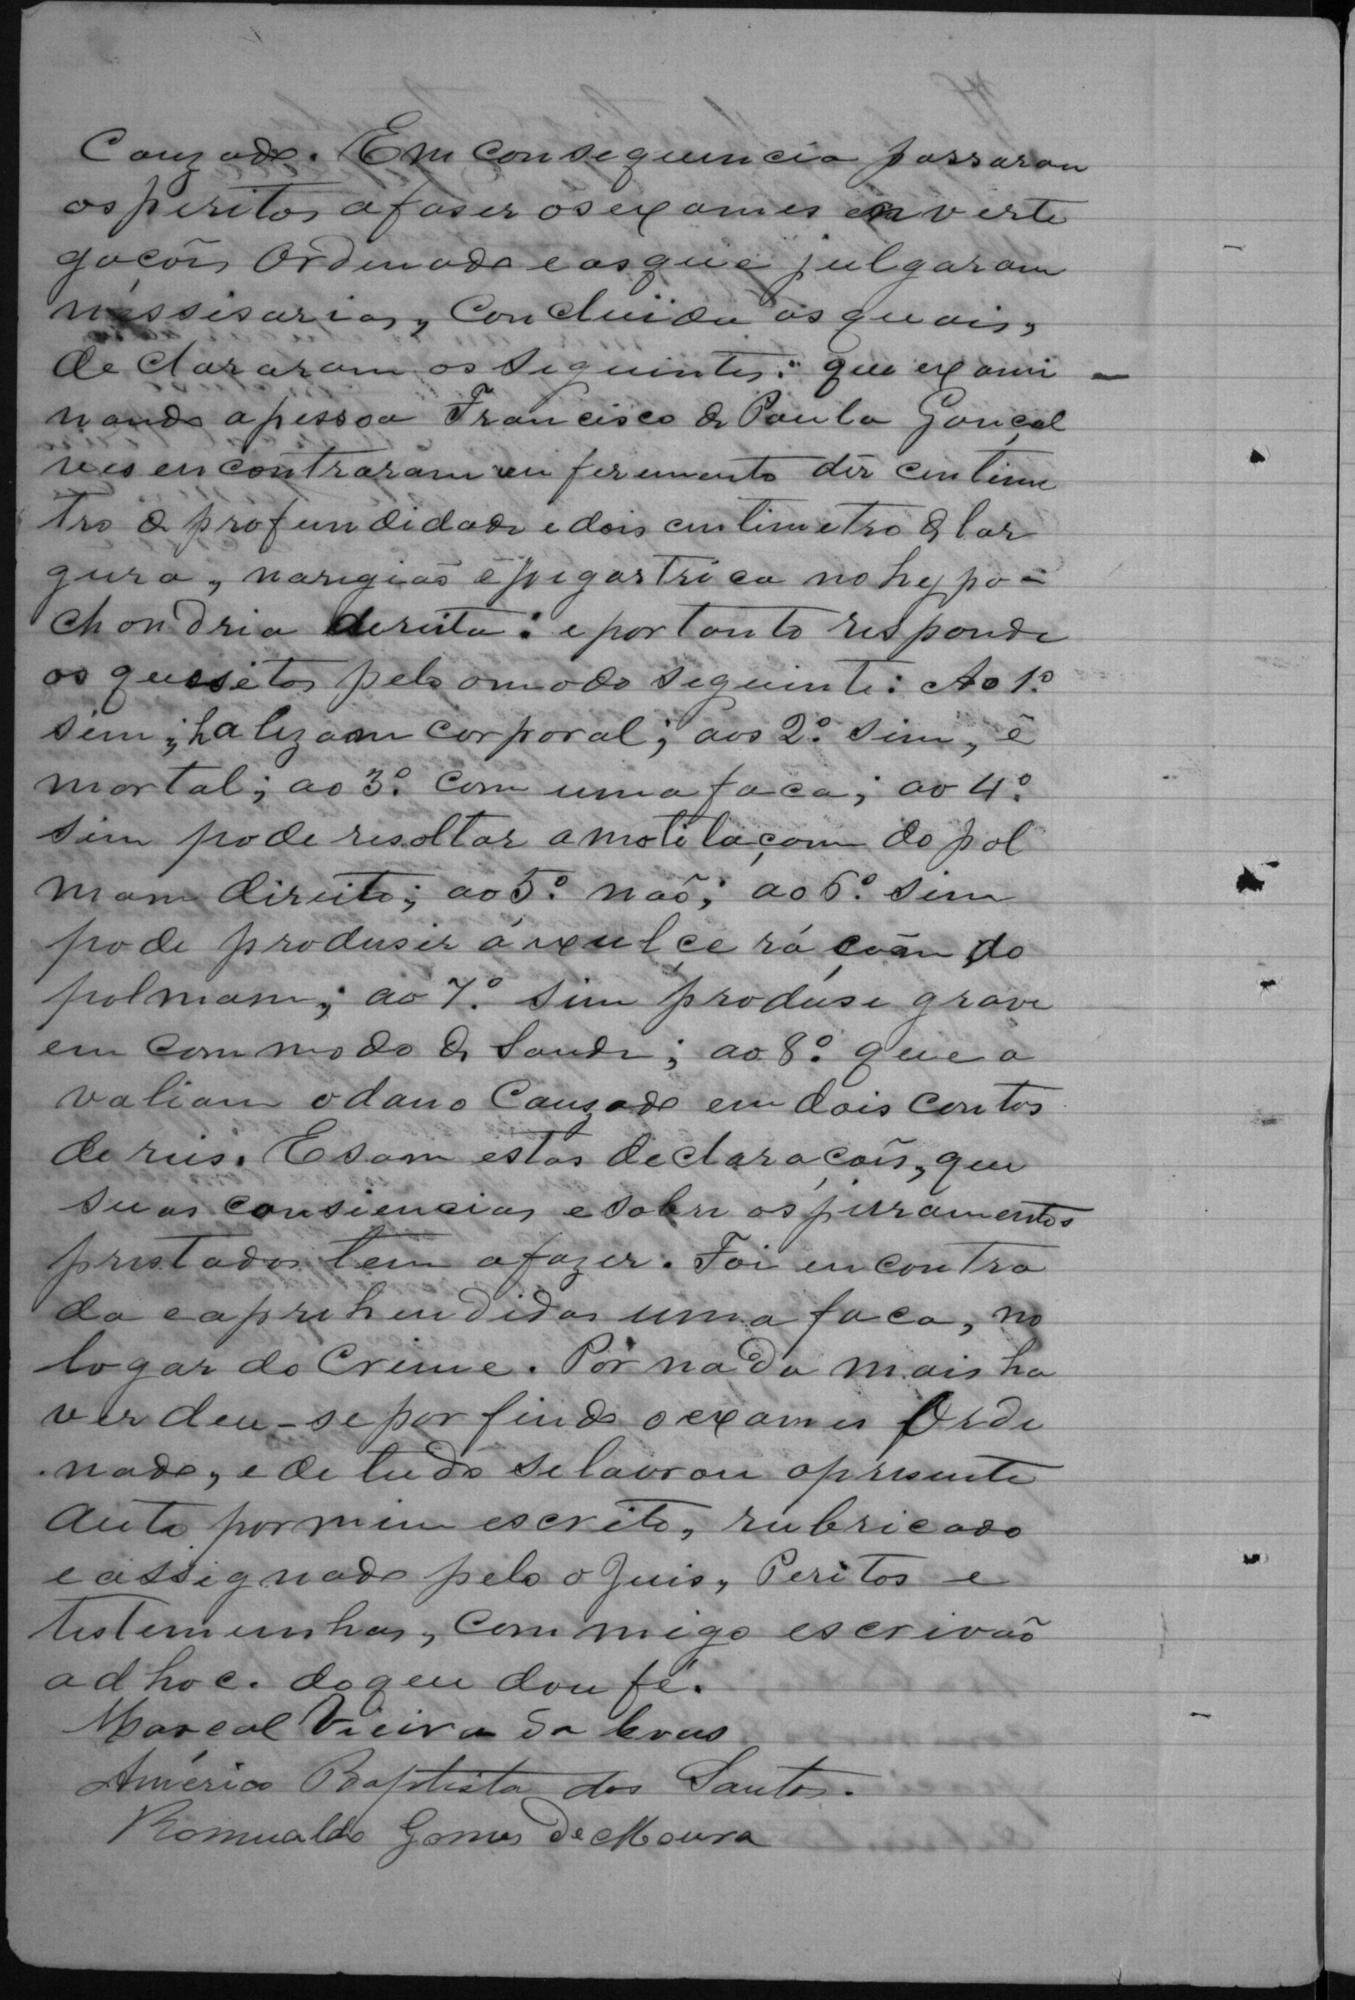 Cauzado. Em consequencia passaram
os peritos a faser os exames enveste
gacois Ordenado e as que e julgaram
nessisarios, Concluida as quais,
declararam os seguintes: que exami
nando a pessoa Francisco de Paula Gonçal
ves encontraram um ferimento der centime
tro de profundidade e dois centimetro de lar
gura, naregiaõ épigastrica no hypo-
chondria dereita: e portanto responde
os quesitos pelo o modo seguinte: Ao 1º
sim, ha lezam corporal; aos 2º sim, é
mortal; ao 3º com uma faca; ao 4º
sim pode resoltar a motilaçam do pol
mam direito; ao 5º naõ; ao 6º sim
pode produsir á exulçeráçam do
polmam; ao 7º sim produse grave
em commodo de Saude; ao 8º que a
valiam o dano Cauzado em dois contos
de reis. E sam estas declaraçoẽs, que
suas consiencias e sobre os juramentos
prestados tem a fazer. Foi encontra
da e aprehendidas uma faca, no
logar do Crime. Por nada mais ha
ver deu-se por findo o exames Orde
nado, e de tudo se lavrou o presente
auto por mim escrito, rubricado
e assignado pelo o Juis, Peritos e
testemunhas, commigo escrivaõ
adhoc. do que dou fé.
Marcal Vieira da
Américo Baptista dos Santos.
Romualdo Gomes de Moura